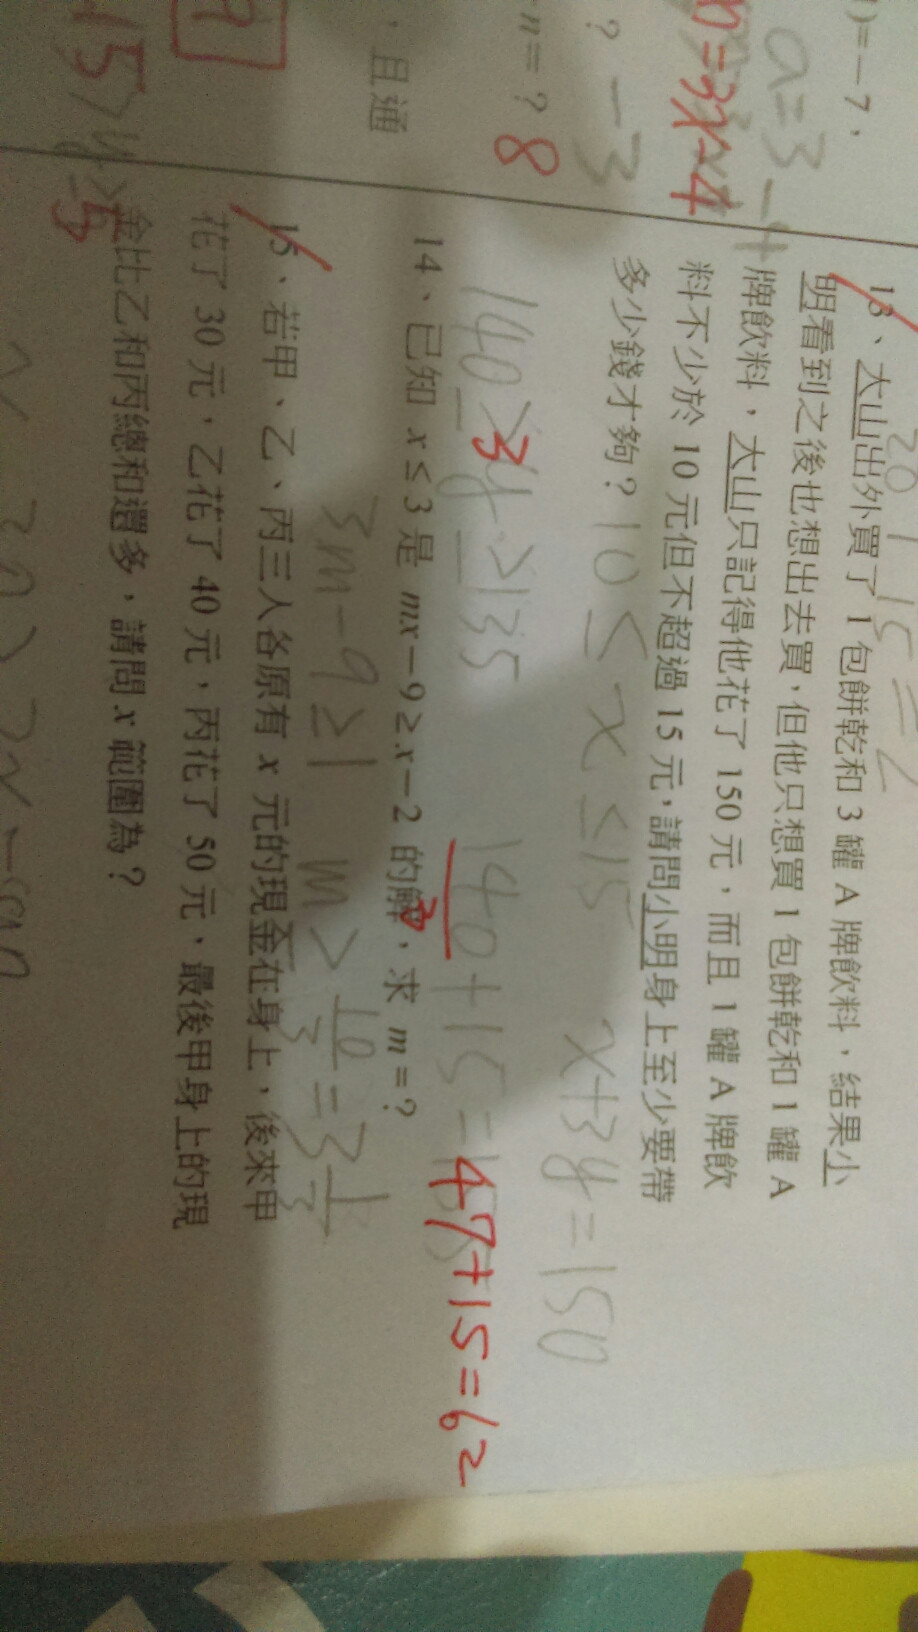 )=－7，
a=3
-4
0=3x-4
？ -3
n=？ 8
，且通
15>y≥5
13、大山出外買了 1 包餅乾和 3 罐 A 牌飲料，結果小
明看到之後也想出去買，但他只想買 1 包餅乾和 1 罐 A
牌飲料，大山只記得他花了 150 元，而且 1 罐 A 牌飲
料不少於 10 元但不超過 15 元，請問小明身上至少要帶
多少錢才夠？ 10≤x≤15
x+3y=150
140≥3y≥135
140+15=
47+15=62
14、已知 x≤3 是 mx－9≥x－2 的解，求 m=？
3
3m-9≥1
m>10/3=3 1/3
15、若甲、乙、丙三人各原有 x 元的現金在身上，後來甲
花了 30 元，乙花了 40 元，丙花了 50 元，最後甲身上的現
金比乙和丙總和還多，請問 x 範圍為？